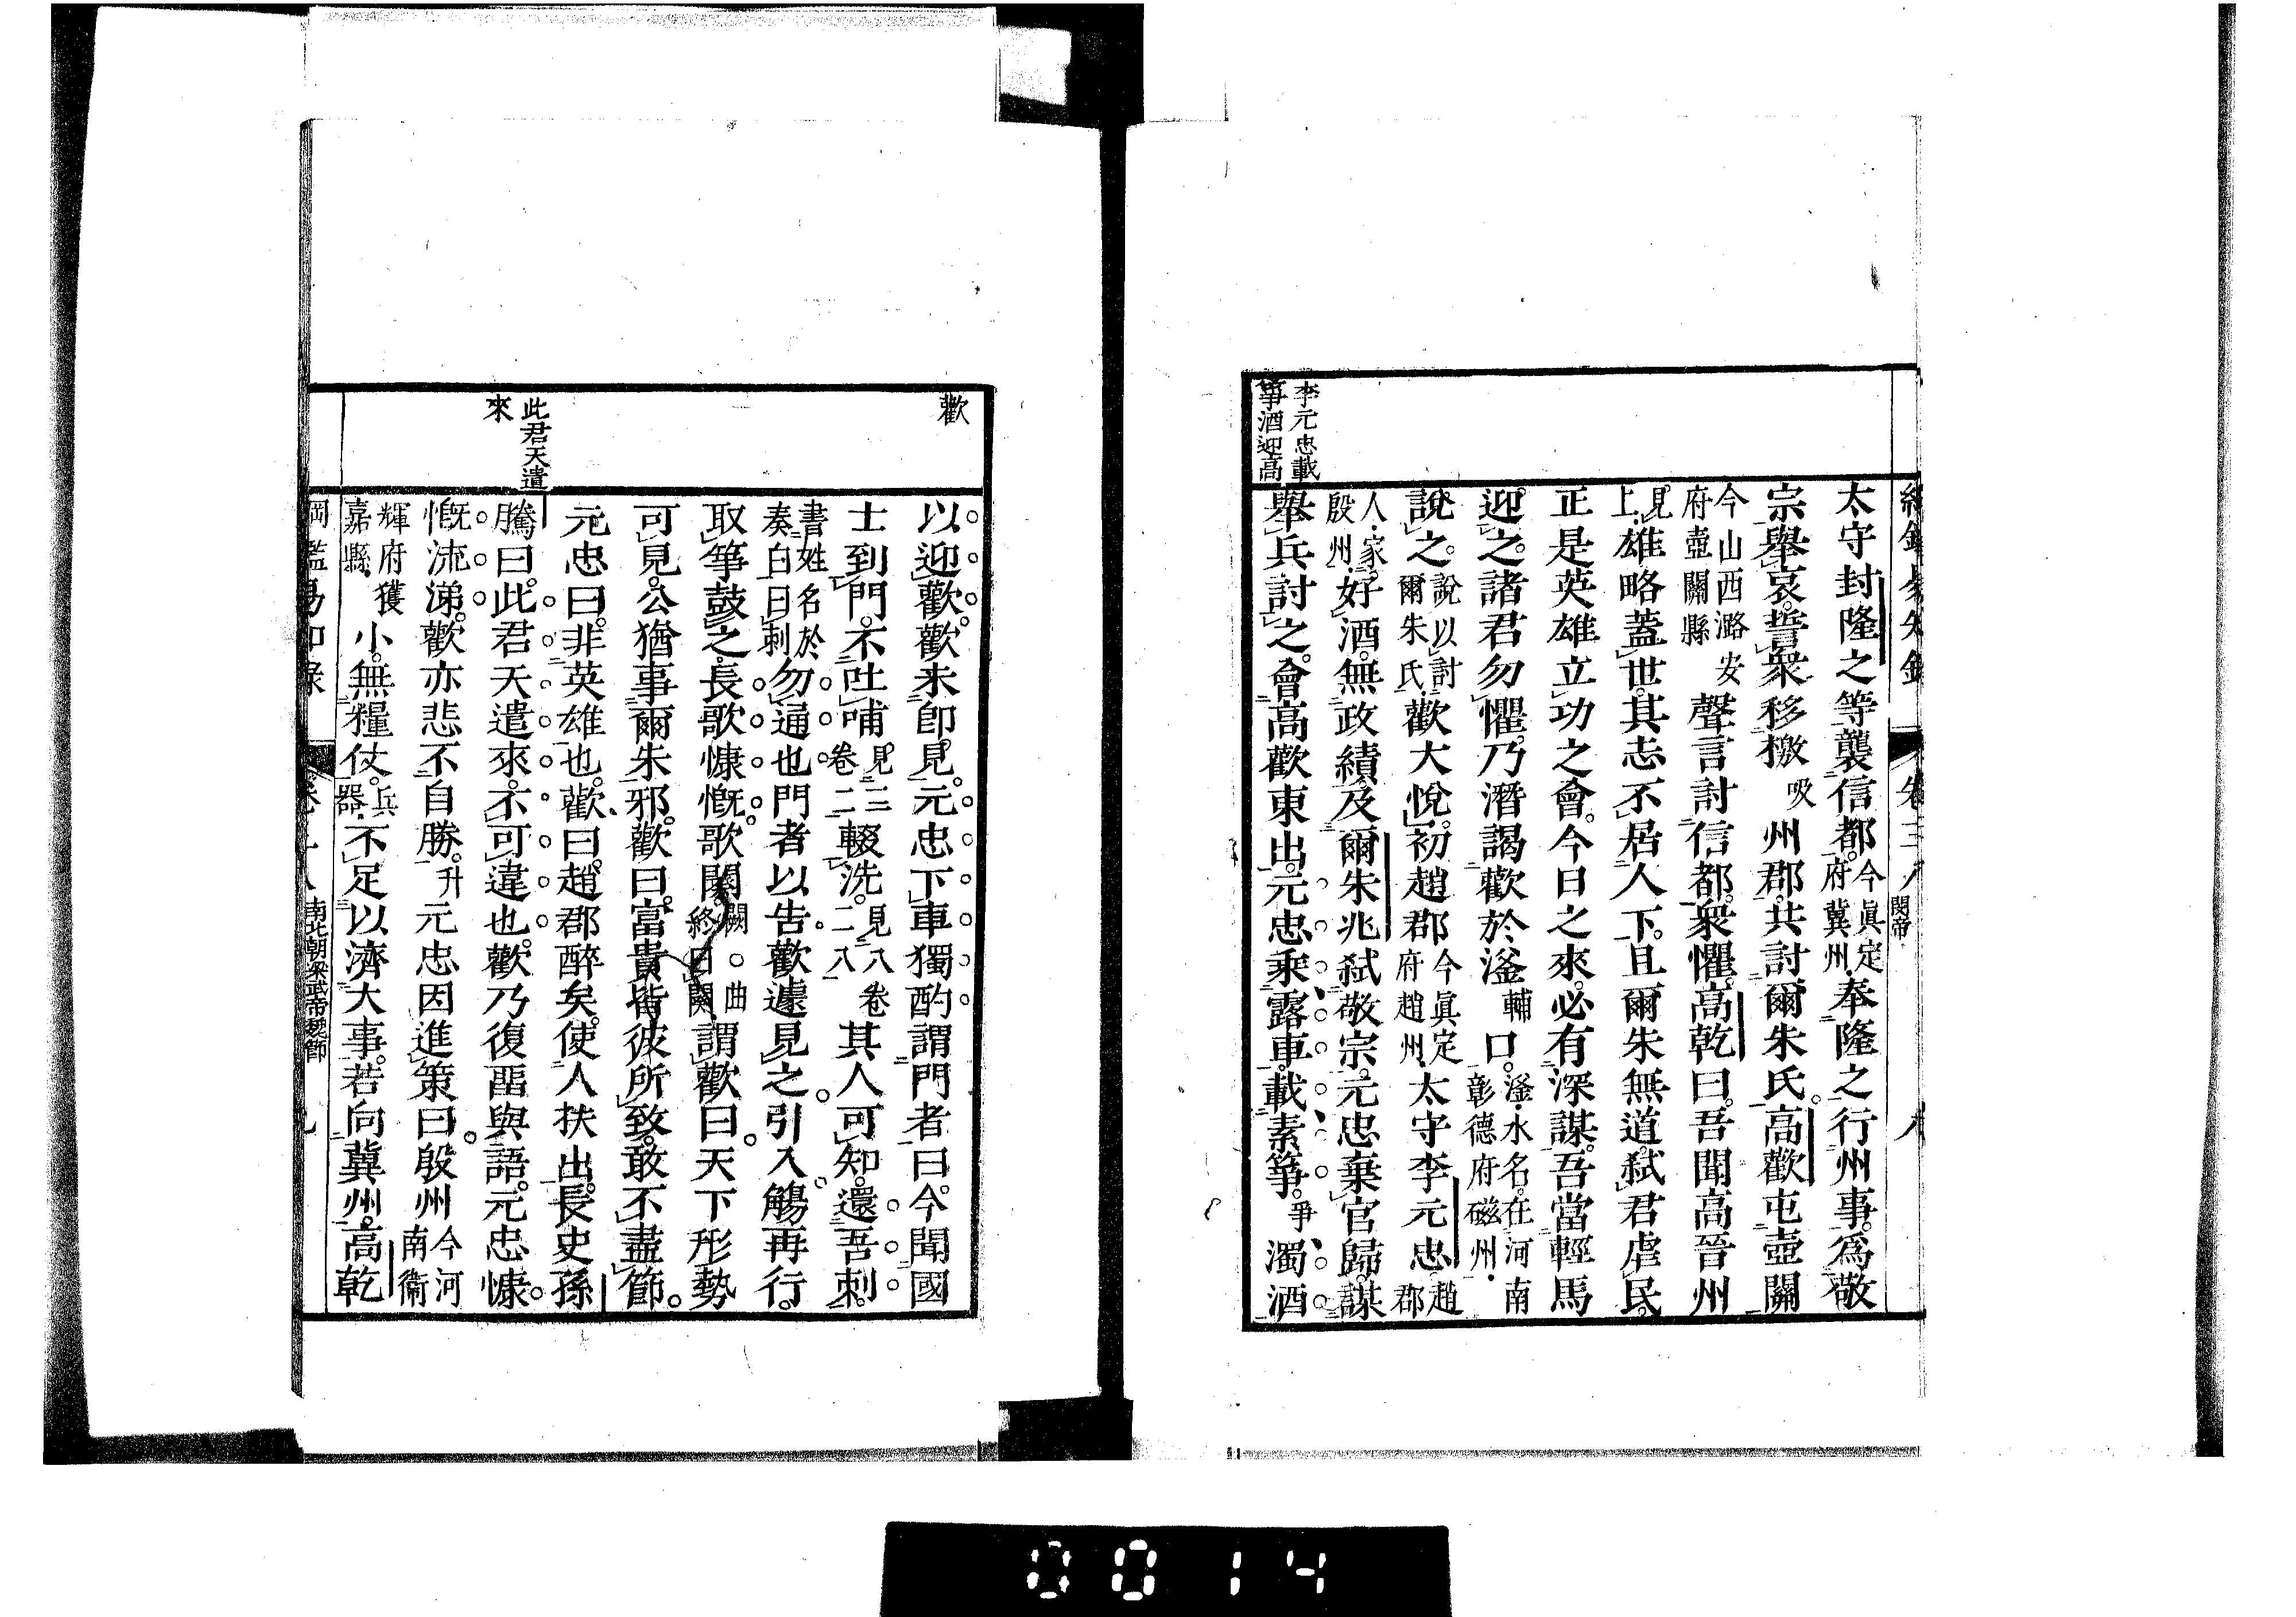 李元忠載
箏酒迎高
太守封隆之等襲信都。今眞定府冀州。奉隆之行州事。爲敬
宗舉哀。誓衆移檄吸州郡。共討爾朱氏。高歡屯壺關
今山西潞安府壺關縣聲言討信都。衆懼。高乾曰。吾聞高晉州
見上。雄略蓋世。其志不居人下。且爾朱無道。弒君虐民。
正是英雄立功之會。今日之來。必有深謀。吾當輕馬
迎之。諸君勿懼。乃潛謁歡於滏輔口。滏水名。在河南彰德府磁州。
說之。說以討爾朱氏。歡大悅。初趙郡今眞定府趙州。太守李元忠趙郡
人。家殷州。好酒。無政績。及爾朱兆弒敬宗。元忠棄官歸。謀
舉兵討之。會高歡東出。元忠乘露車。載素箏。爭濁酒
歡
此君天遣
來
以迎歡。歡未卽見。元忠下車獨酌。謂門者曰。今聞國
士到門。不吐哺見三卷二輟洗。見八卷二八其人可知。還吾刺。
書姓名於奏白曰刺勿通也。門者以告。歡遽見之。引入。觴再行。
取箏鼓之。長歌慷慨。歌闋。闕。曲終曰闋謂歡曰。天下形勢
可見。公猶事爾朱邪。歡曰。富貴皆彼所致。敢不盡節。
元忠曰。非英雄也。歡曰。趙郡醉矣。使人扶出。長史孫
騰曰。此君天遣來。不可違也。歡乃復畱與語。元忠慷
慨流涕。歡亦悲不自勝。升元忠因進策曰。殷州今河南衞
輝府獲嘉縣。小。無糧仗。兵器。不足以濟大事。若向冀州。高乾
南北朝梁武帝魏節